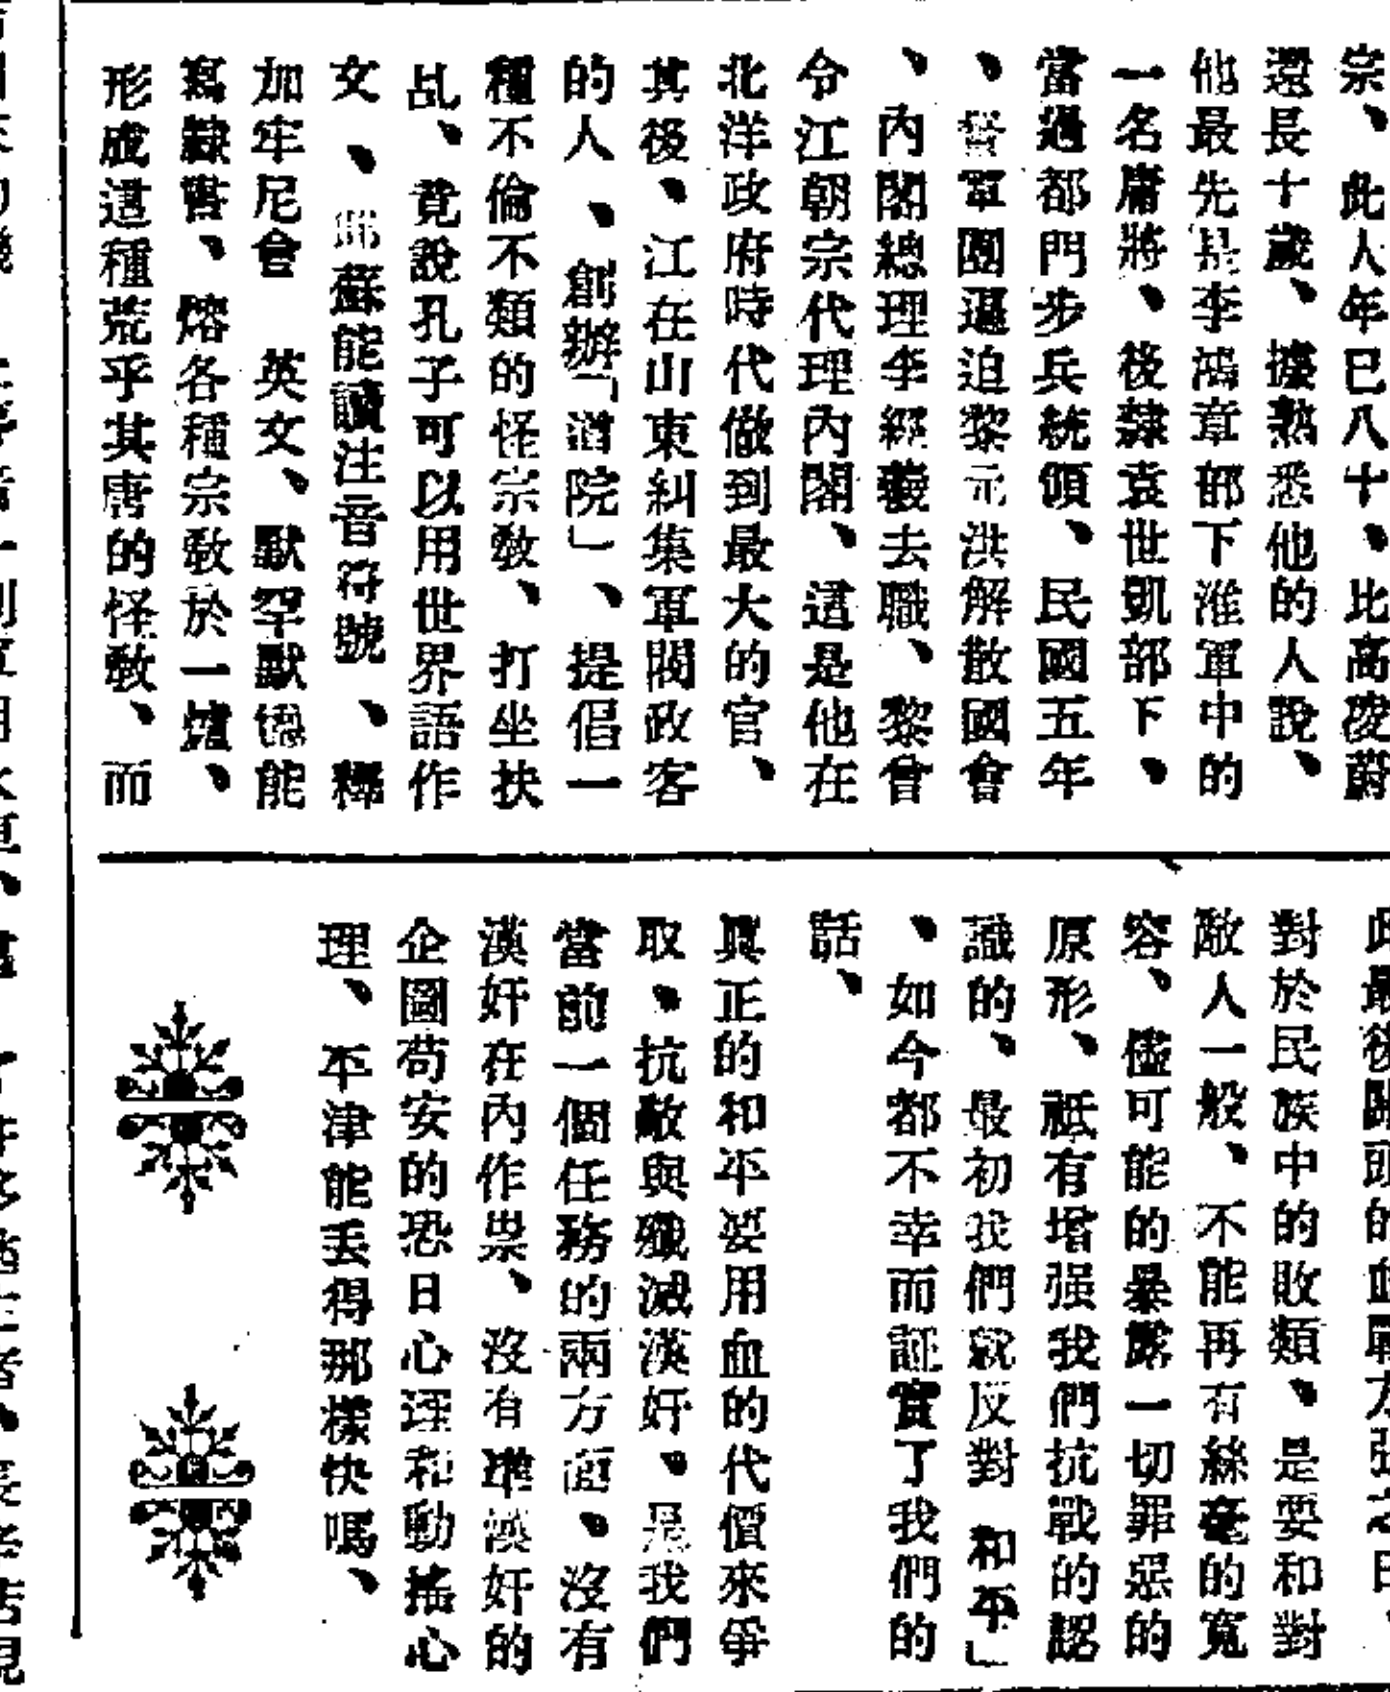 宗、此人年巳八十、比高凌蔚
還長十歲、據熟悉他的人說、
他最先是李鴻章部下淮軍中的
一名庸將、後隸袁世凱部下、
當過都門步兵統領、民國五年
、督軍團逼迫黎元洪解散國會
、內閣總理李經羲去職、黎曾
令江朝宗代理內閣、這是他在
北洋政府時代做到最大的官、
其後、江在山東糾集軍閥政客
的人、創辦「道院」、提倡一
種不倫不類的怪宗敎、打坐扶
乩、竟說孔子可以用世界語作
文、耶蘇能讀注音符號、釋
加牟尼會 英文、默罕默德能
寫隸書、熔各種宗敎於一爐、
形成這種荒乎其唐的怪敎、而
此最後關頭的血戰方張之日、
對於民族中的敗類、是要和對
敵人一般、不能再有絲毫的寬
容、儘可能的暴露一切罪惡的
原形、祗有增强我們抗戰的認
識的、最初我們就反對 和平」
、如今都不幸而証實了我們的
話、
眞正的和平要用血的代價來爭
取、抗敵與殲滅漢奸、是我們
當前一個任務的兩方面、沒有
漢奸在內作祟、沒有準漢奸的
企圖苟安的恐日心理和動搖心
理、平津能丢得那樣快嗎、